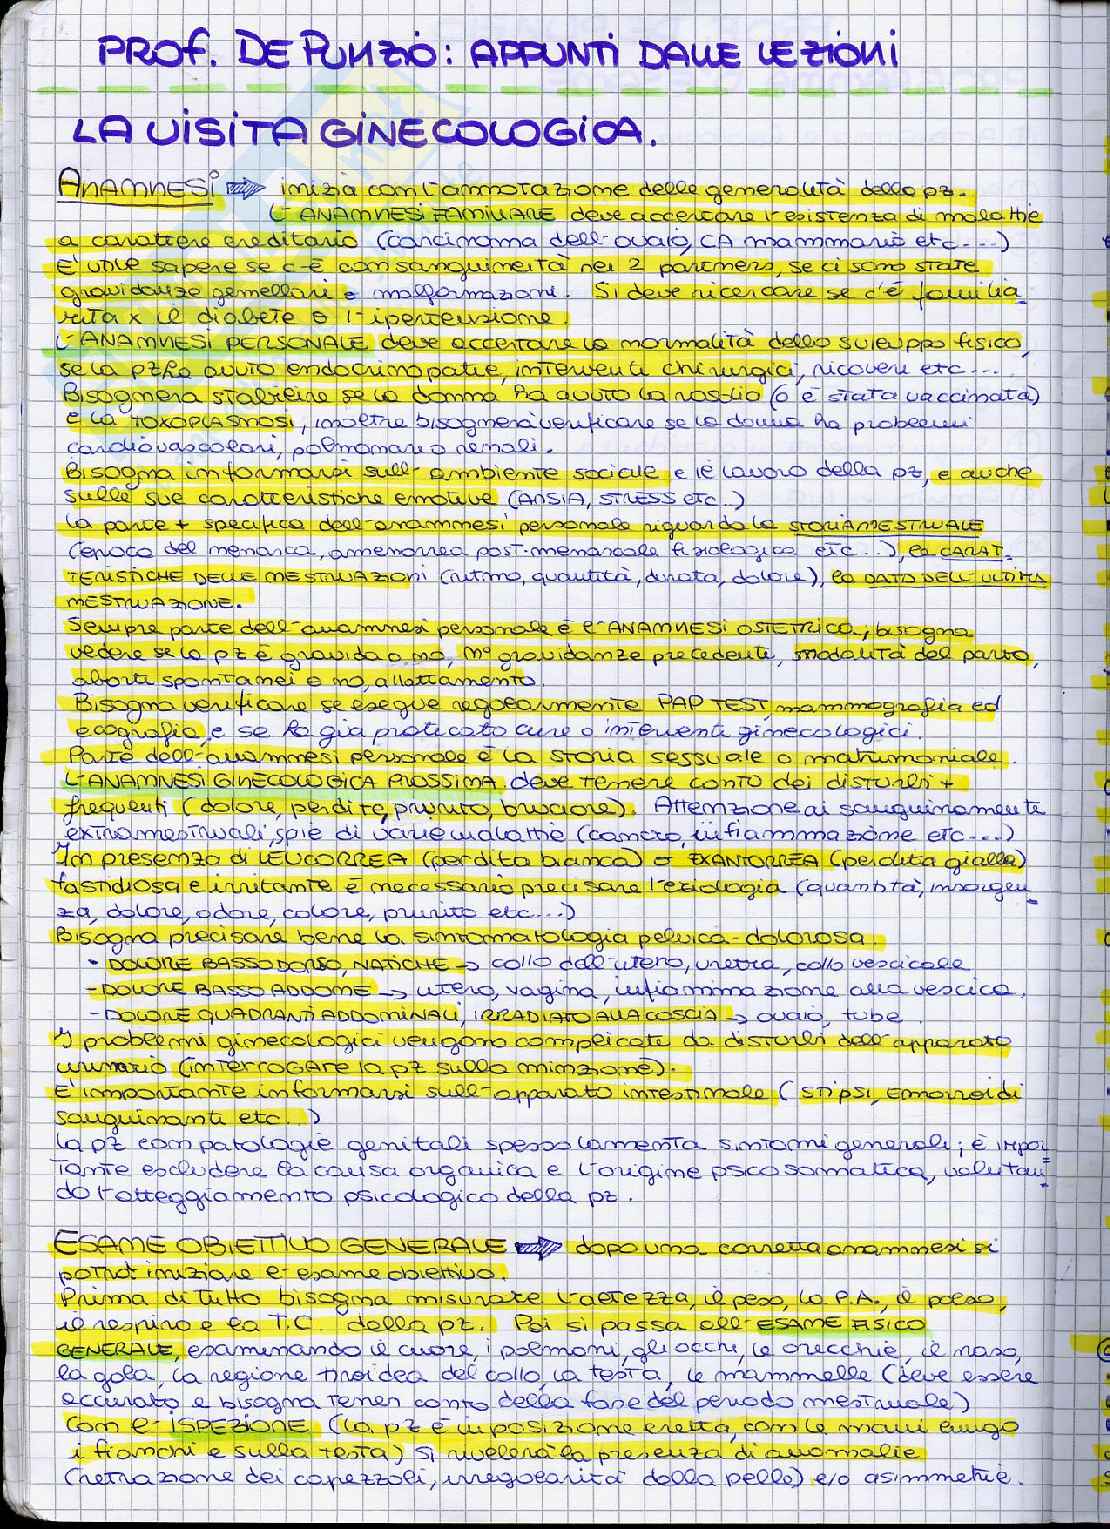 PROF. DE PUNZIO: APPUNTI DALLE LEZIONI
LA VISITA GINECOLOGICA.
ANAMNESI ⇒ inizia con l'annotazione delle generalità della pz.
L'ANAMNESI FAMILIARE deve accertare l'esistenza di malattie
a carattere ereditario (carcinoma dell'ovaio, CA mammario etc....)
E' utile sapere se c'è consanguineità nei 2 partners, se ci sono state
gravidanze gemellari e malformazioni. Si deve ricercare se c'è familia
rità x il diabete o l'ipertensione.
L'ANAMNESI PERSONALE deve accertare la normalità dello sviluppo fisico,
se la pz ha avuto endocrinopatie, interventi chirurgici, ricoveri etc....
Bisognerà stabilire se la donna ha avuto la rosolia (o è stata vaccinata)
e la TOXOPLASMOSI, inoltre bisognerà verificare se la donna ha problemi
cardiovascolari, polmonari o renali.
Bisogna informarsi sull'ambiente sociale e il lavoro della pz, e anche
sulle sue caratteristiche emotive (ANSIA, STRESS etc..)
La parte + specifica dell'anamnesi personale riguarda la STORIA MESTRUALE
(epoca del menarca, amenorrea post-menarcale fisiologica etc...), le CARAT
TERISTICHE DELLE MESTRUAZIONI (ritmo, quantità, durata, dolore), la DATA DELL'ULTIMA
MESTRUAZIONE.
Sempre parte dell'anamnesi personale è l'ANAMNESI OSTETRICA; bisogna
vedere se la pz è gravida o no, n° gravidanze precedenti, modalità del parto,
aborti spontanei o no, allattamento.
Bisogna verificare se esegue regolarmente PAP TEST, mammografia ed
ecografia, e se ha già praticato cure o interventi ginecologici.
Parte dell'anamnesi personale è la storia sessuale o matrimoniale.
L'ANAMNESI GINECOLOGICA PROSSIMA deve tenere conto dei disturbi +
frequenti (dolore, perdite, prurito, bruciore). Attenzione ai sanguinamenti
extramestruali, spie di varie malattie (cancro, infiammazione etc....)
In presenza di LEUCORREA (perdita bianca) o EXANTORREA (perdita gialla)
fastidiosa e irritante è necessario precisare l'eziologia (quantità, insorgen
za, dolore, odore, colore, prurito etc...)
Bisogna precisare bene la sintomatologia pelvica-dolorosa.
- DOLORE BASSO DORSO, NATICHE → collo dell'utero, uretra, collo vescicale
- DOLORE BASSO ADDOME → utero, vagina, infiammazione alla vescica.
- DOLORE QUADRANTI ADDOMINALI, IRRADIATO ALLA COSCIA → ovaio, tube.
I problemi ginecologici vengono complicati da disturbi dell'apparato
urinario (INTERROGARE la pz sulla minzione).
E' importante informarsi sull'apparato intestinale (stipsi, emorroidi
sanguinanti etc...)
La pz con patologie genitali spesso lamenta sintomi generali; è impor
tante escludere la causa organica e l'origine psicosomatica, valutan
do l'atteggiamento psicologico della pz.
ESAME OBIETTIVO GENERALE ⇒ dopo una corretta anamnesi si
potrà iniziare l'esame obiettivo.
Prima di tutto bisogna misurare l'altezza, il peso, la P.A., il polso,
il respiro e la T.C. della pz. Poi si passa all'ESAME FISICO
GENERALE, esaminando il cuore, i polmoni, gli occhi, le orecchie, il naso,
la gola, la regione tiroidea del collo, la testa, le mammelle (deve essere
accurato e bisogna tener conto della fase del periodo mestruale)
Con l'ISPEZIONE (la pz è in posizione eretta, con le mani lungo
i fianchi e sulla testa) si rivelerà la presenza di anomalie
(retrazione dei capezzoli, irregolarità della pelle) e/o asimmetrie.